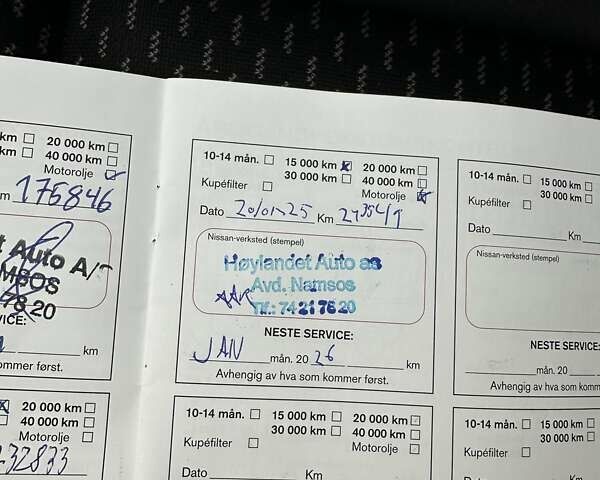 km 20 000 km
km 40 000 km
Motorolje
m 175846
t Auto A/
MSOS
78 20
VICE:
km
ommer først.
20 000 km
40 000 km
Motorolje
32833
10-14 mån. 15 000 km 20 000 km
30 000 km 40 000 km
Kupéfilter Motorolje
Dato 20/01-25 Km
Nissan-verksted (stempel)
Høylandet Auto as
Avd. Namsos
Tlf.: 74 21 78 20
NESTE SERVICE:
JAN mån. 20 26
Avhengig av hva som kommer først.
10-14 mån. 15 000 km 20 000 km
30 000 km 40 000 km
Kupéfilter Motorolje
Dato Km
10-14 mån. 15 000 km
30 000 km
Kupéfilter
Dato Km
Nissan-verksted (stempel)
NESTE SERVICE:
mån. 20
Avhengig av hva som komm
10-14 mån. 15 000 km
30 000 km
Kupéfilter